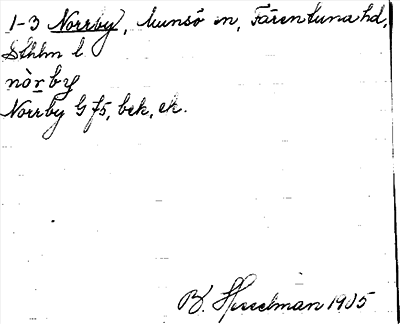 1-3 Norrby, Munsö sn, Färentuna hd,
Sthlm l.
nòrby
Norrby G f5, bek, ek.
B. Hesselman 1905